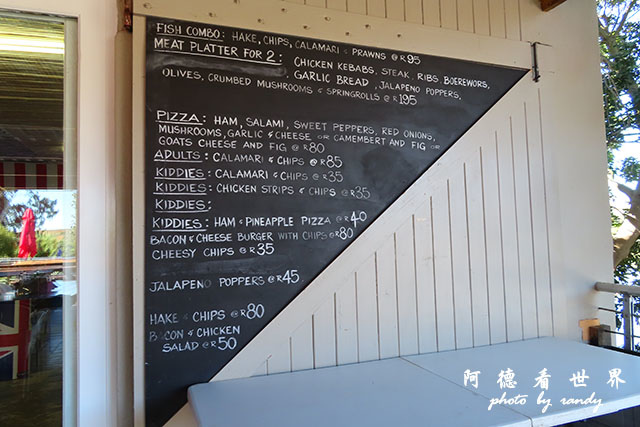 FISH COMBO: HAKE, CHIPS, CALAMARI & PRAWNS @ R95
MEAT PLATTER FOR 2: CHICKEN KEBABS, STEAK, RIBS, BOEREWORS,
GARLIC BREAD, JALAPENO POPPERS,
OLIVES, CRUMBED MUSHROOMS & SPRINGROLLS @ R195
PIZZA: HAM, SALAMI, SWEET PEPPERS, RED ONIONS,
MUSHROOMS, GARLIC & CHEESE OR CAMEMBERT AND FIG OR
GOATS CHEESE AND FIG @ R80
ADULTS: CALAMARI & CHIPS @ R85
KIDDIES: CALAMARI & CHIPS @ R35
KIDDIES: CHICKEN STRIPS & CHIPS @ R35
KIDDIES:
KIDDIES: HAM & PINEAPPLE PIZZA @ R40
BACON & CHEESE BURGER WITH CHIPS @ R80
CHEESY CHIPS @ R35
JALAPENO POPPERS @ R45
HAKE & CHIPS @ R80
BACON & CHICKEN
SALAD @ R50
阿德看世界
photo by randy